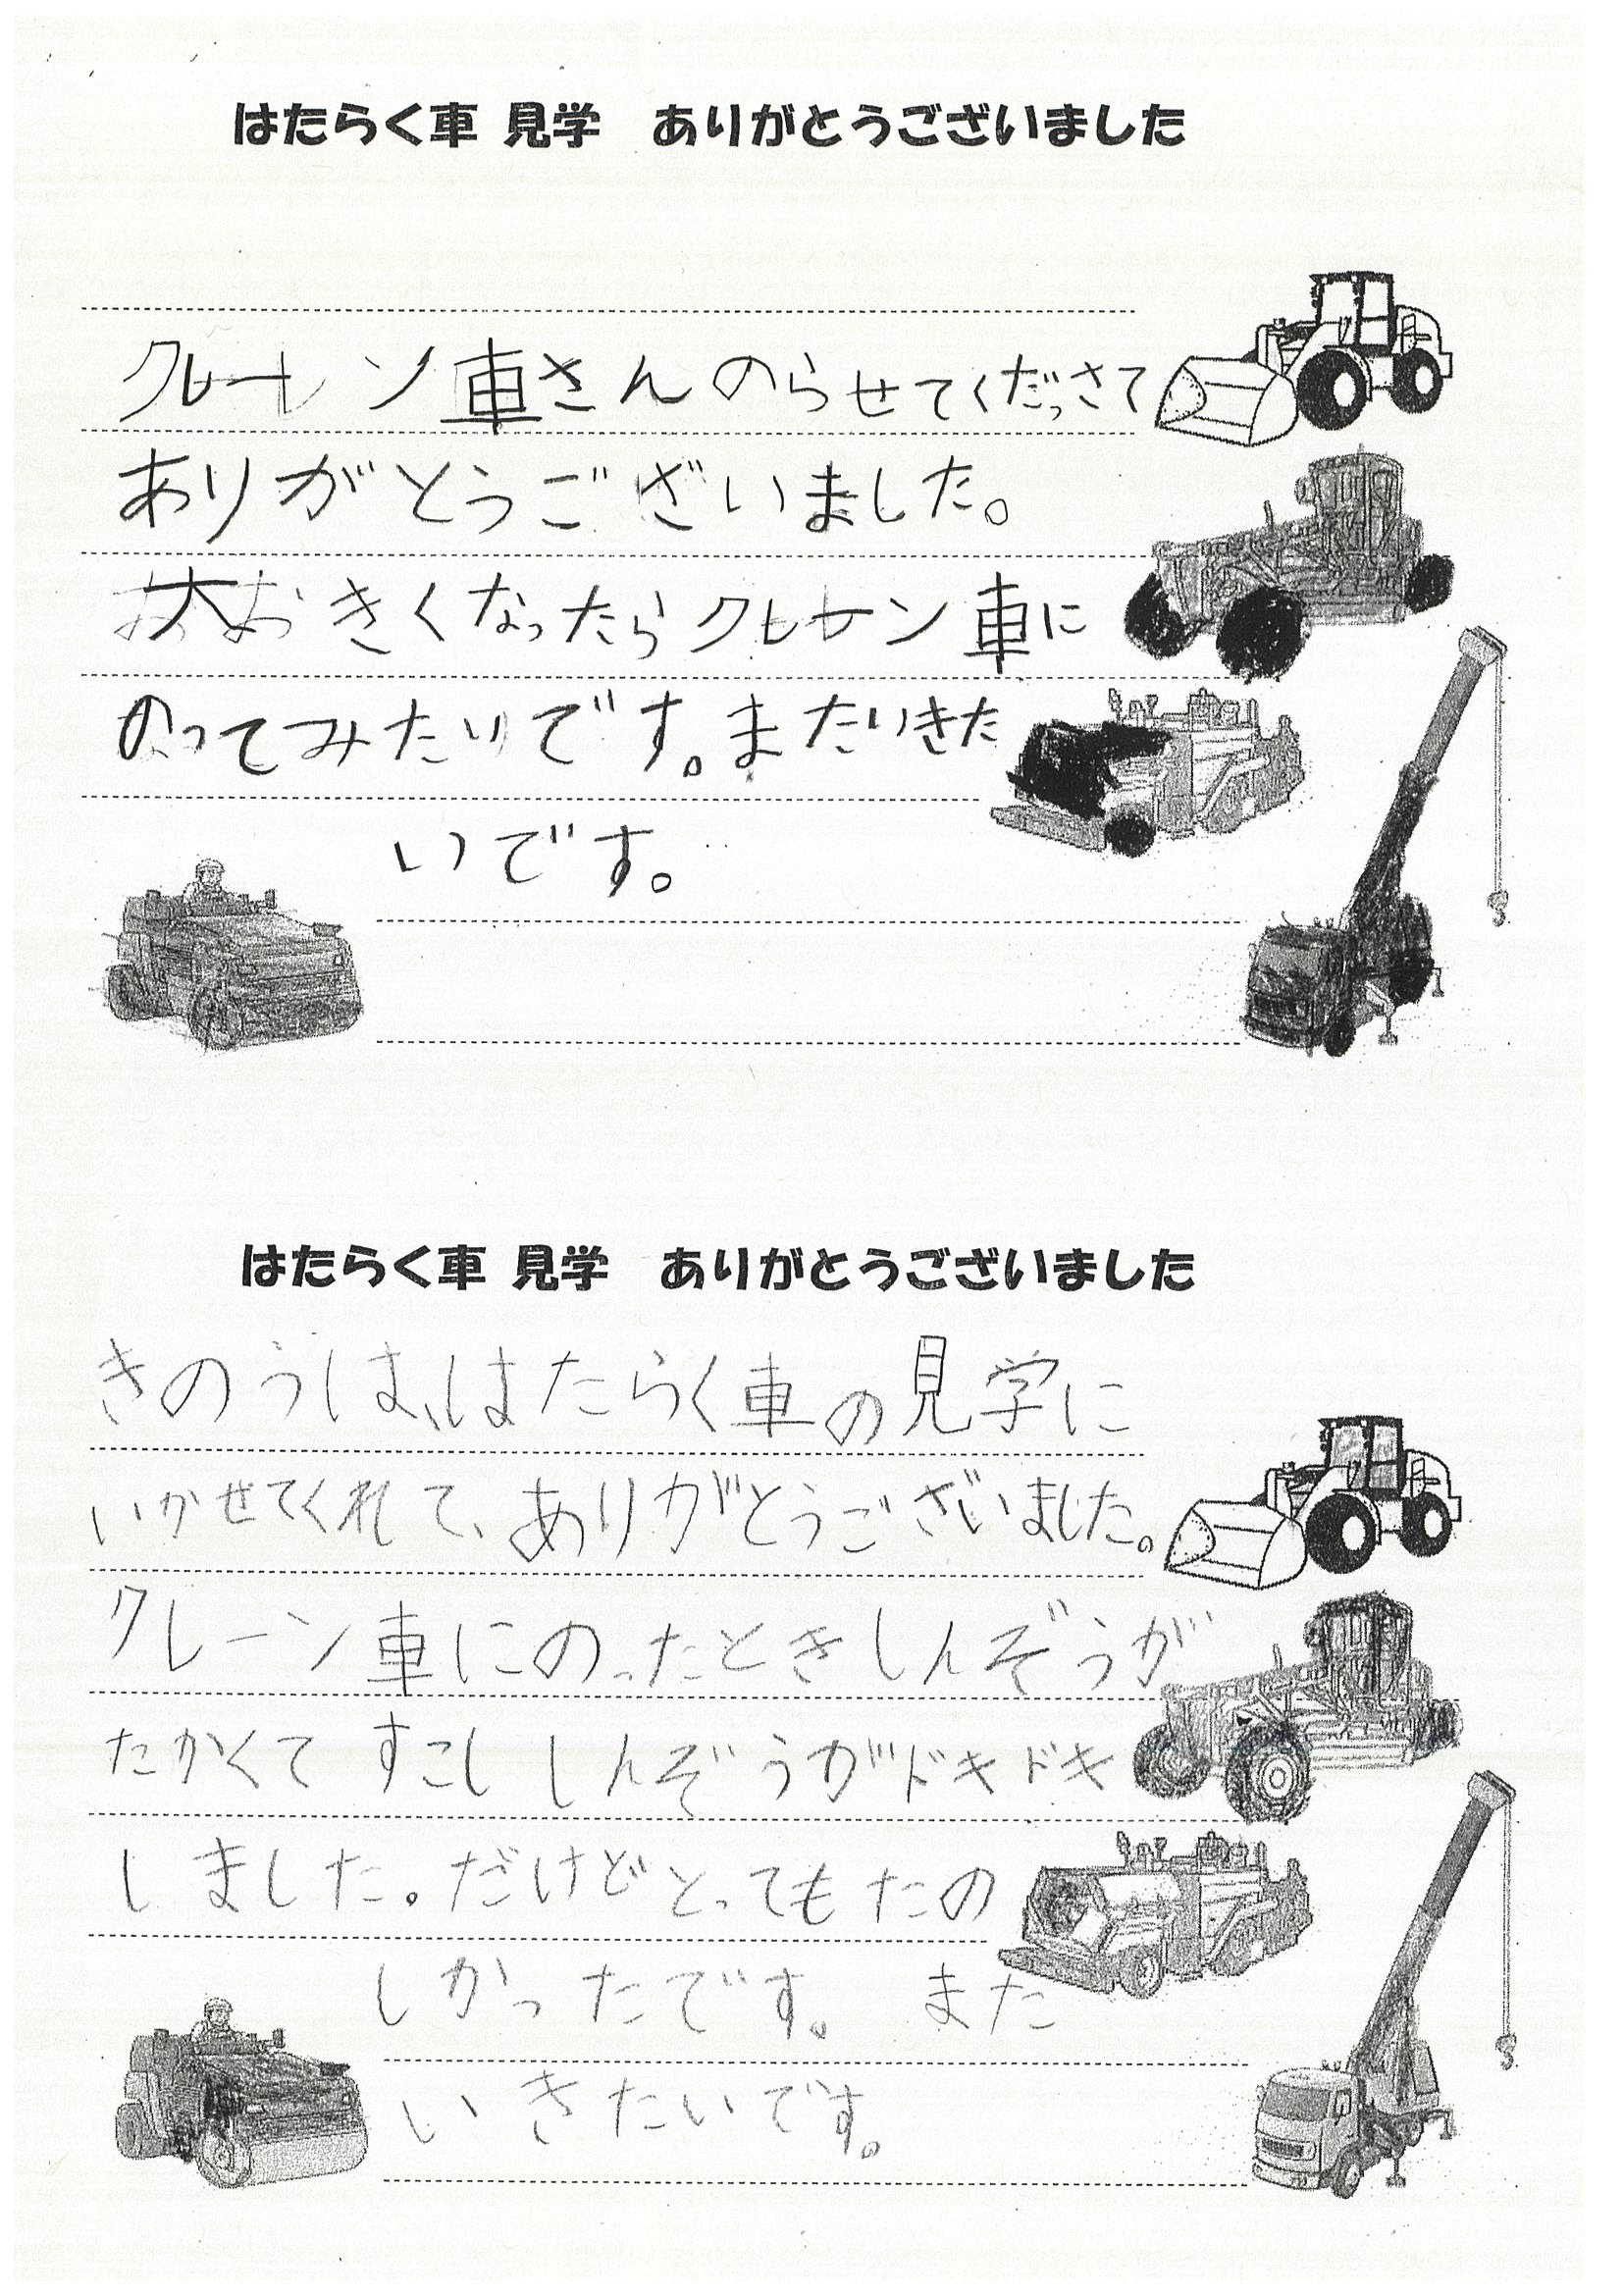 はたらく車 見学 ありがとうございました
クレーン車さんのらせてくだっさて
ありがとうございました。
大きくなったらクレーン車に
のってみたいです。またいきた
いです。
はたらく車 見学 ありがとうございました
きのうは、はたらく車の見学に
いかせてくれて、ありがとうございました。
クレーン車にのったときしんぞうが
たかくて すこし しんぞうがドキドキ
しました。だけどとってもたの
しかったです。 また
いきたいです。